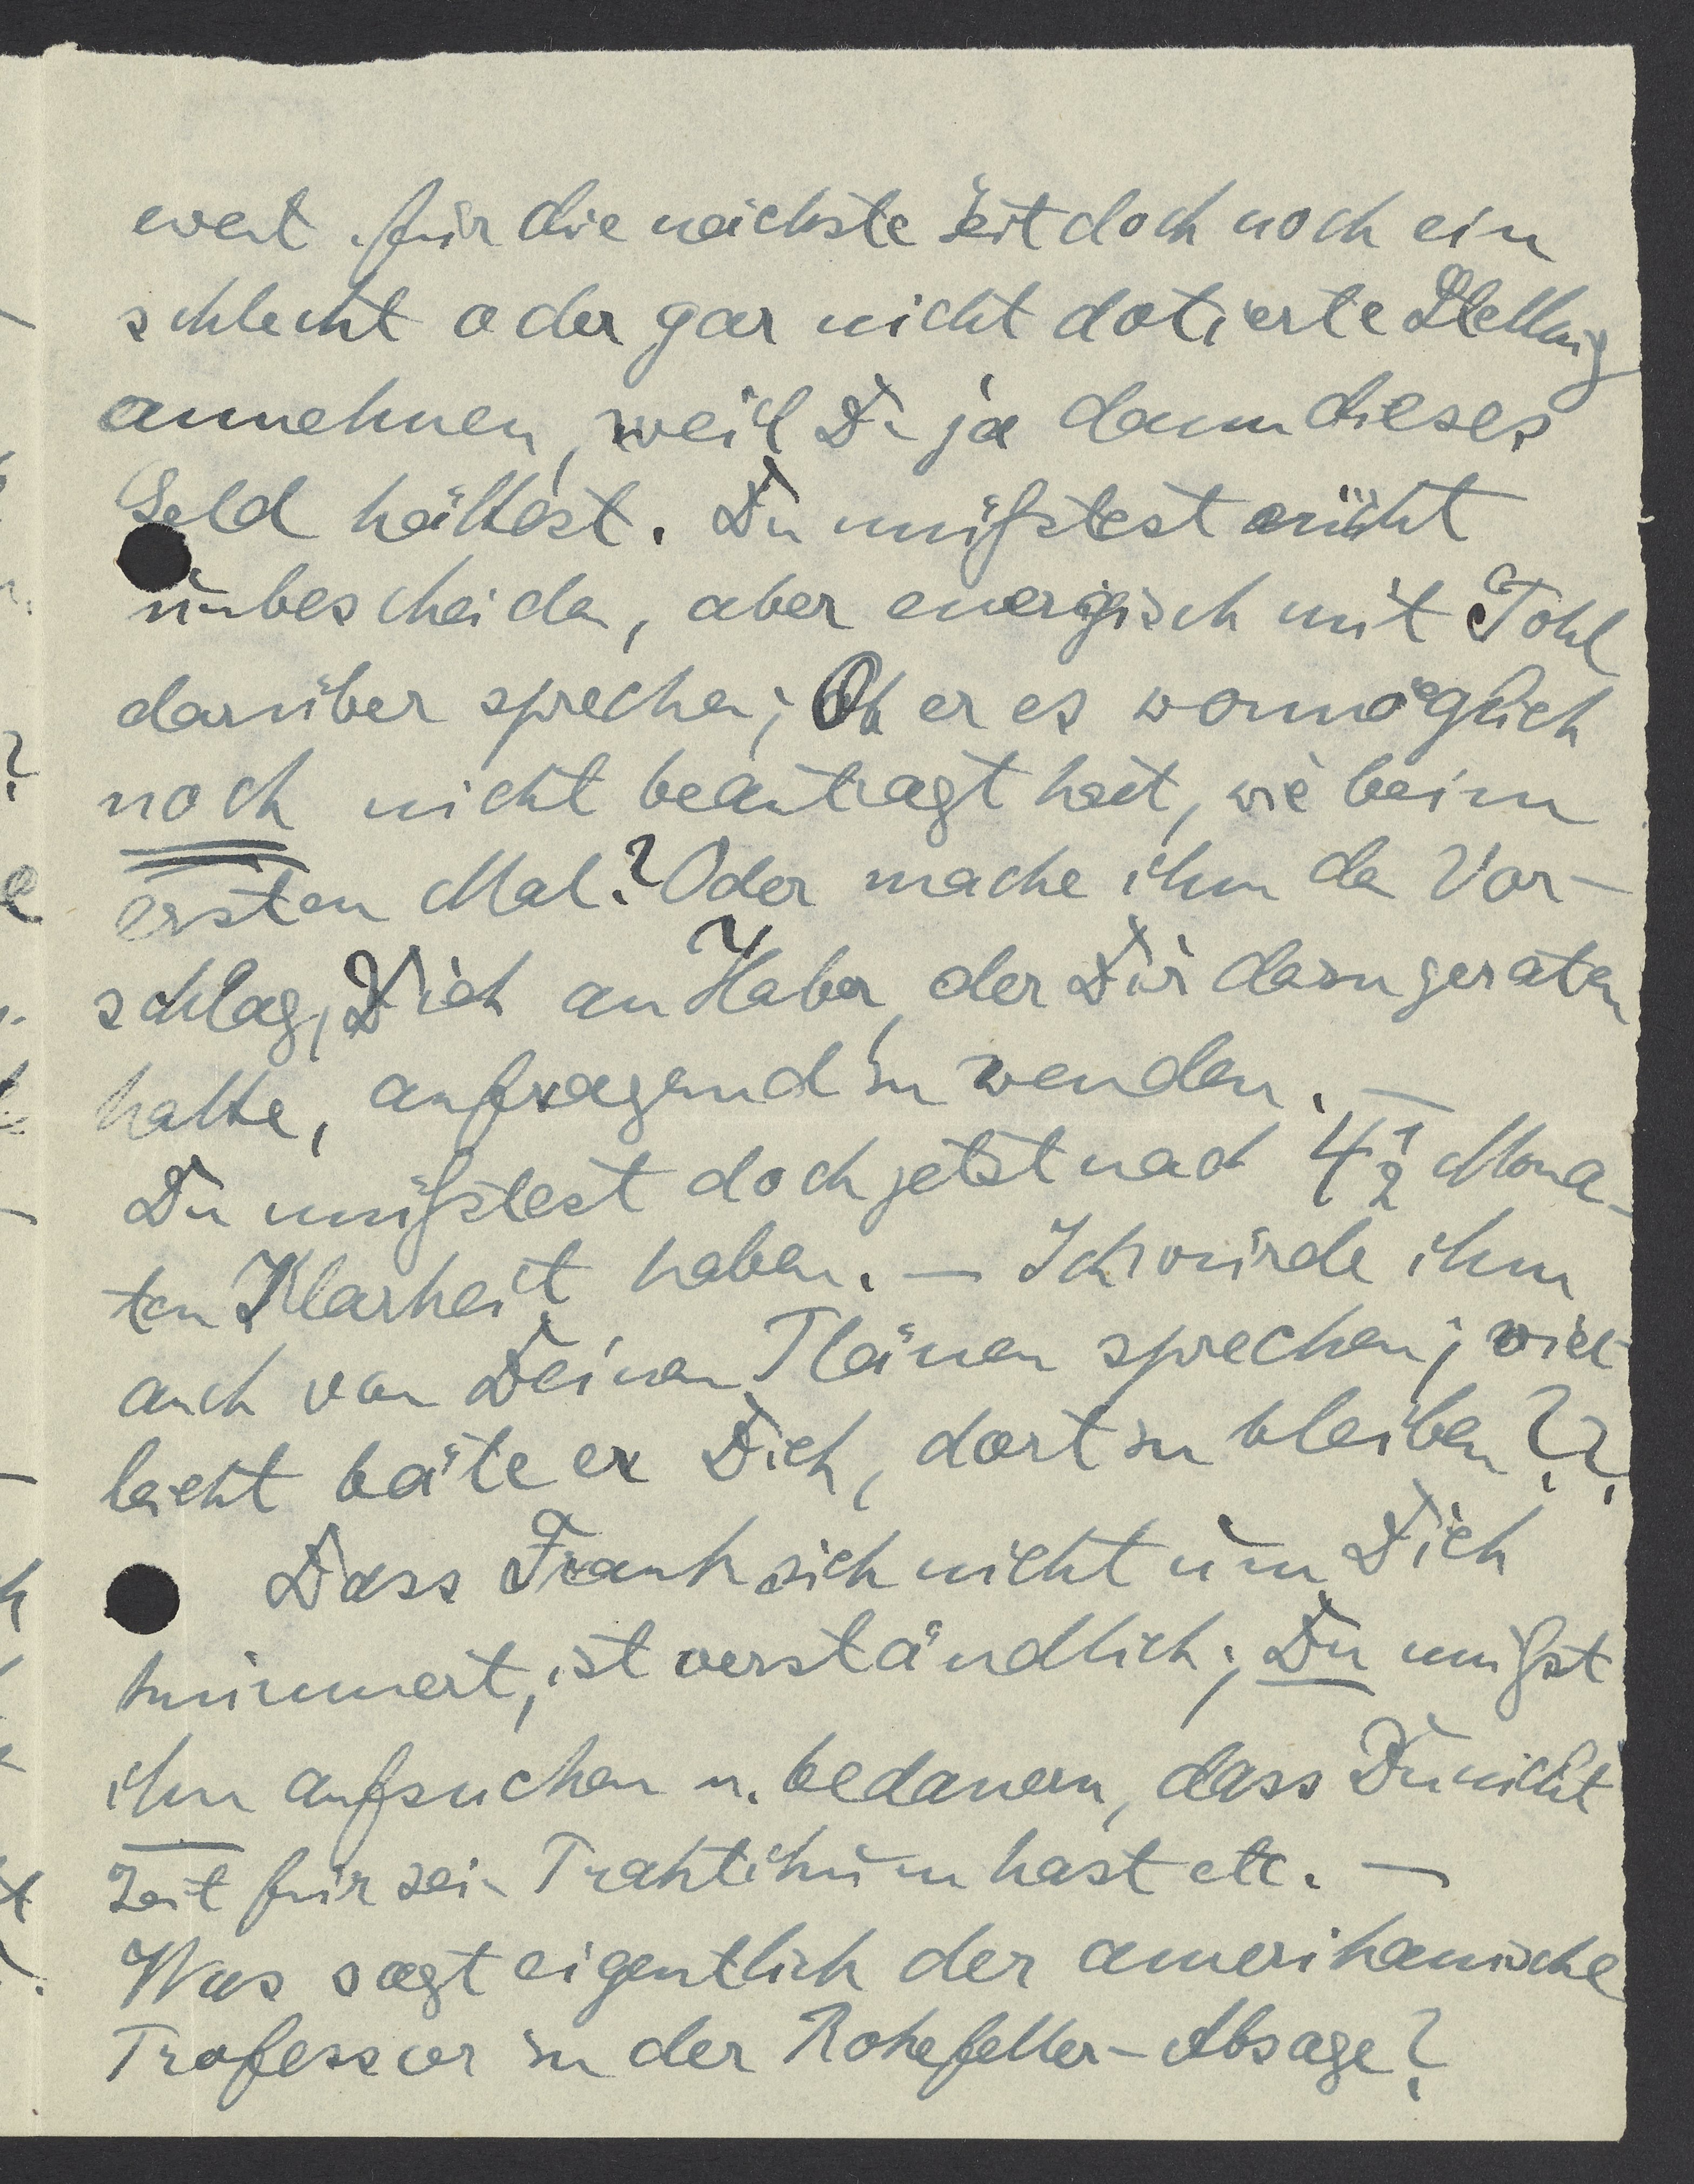 event. für die nächste Zeit doch noch ein
schlecht oder gar nicht dotierte Stellung
annehmen, weil Du ja dann dieses
Geld hättest. Du müßtest nicht
unbescheiden, aber energisch mit Pohl
darüber sprechen; Ob er es womöglich
noch nicht beantragt hat, wie beim
ersten Mal? Oder mache ihm den Vor-
schlag, Dich an Haber, der Dir dazu geraten
hatte, anfragend zu wenden. —
Du müßtest doch jetzt nach 4 1/2 Mona-
ten Klarheit haben. — Ich würde ihm
auch von Deinen Plänen sprechen; viel-
leicht bäte er Dich, dort zu bleiben??
Dass Frank sich nicht um Dich
kümmert, ist verständlich; Du mußt
ihn aufsuchen u. bedauern, dass Du nicht
Zeit für sein Praktikum hast etc. —
Was sagt eigentlich der amerikanische
Professor zu der Rokefeller-Absage?